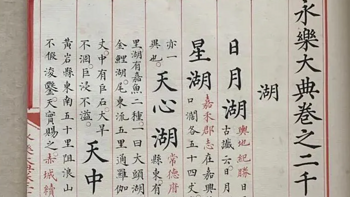 永樂大典卷之二千
湖
日月湖 輿地紀勝日月
古讖云日月
星湖 嘉禾郡志在嘉興
口濶各五十四丈
亦一
異也 天心湖 常德府
縣東有
里湖有嘉魚二種一曰大頭湖
金鯉湖尾東流五里通難伽
丈中有巨石大旱
不涸巨浸不溢 天中
黃岩縣東南五十里阻浪山
不假浚鑿天實賜之赤城積